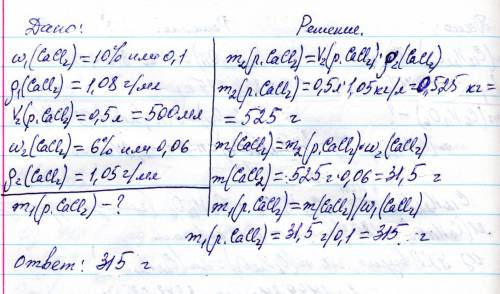 Дано:
ω₁(CaCl₂)=10% или 0,1
ρ₁(CaCl₂)=1,08 г/мл
V₂(р.CaCl₂)=0,5л=500мл
ω₂(CaCl₂)=6% или 0,06
ρ₂(CaCl₂)=1,05 г/мл
m₁(р.CaCl₂)-?
Решение.
m₂(р.CaCl₂)=V₂(р.CaCl₂)·ρ₂(CaCl₂)
m₂(р.CaCl₂)=0,5л·1,05 кг/л=0,525 кг=
=525 г
m(CaCl₂)=m₂(р.CaCl₂)·ω₂(CaCl₂)
m(CaCl₂)=525г·0,06=31,5 г
m₁(р.CaCl₂)=m(CaCl₂)/ω₁(CaCl₂)
m₁(р.CaCl₂)=31,5 г/0,1=315 г
Ответ: 315 г